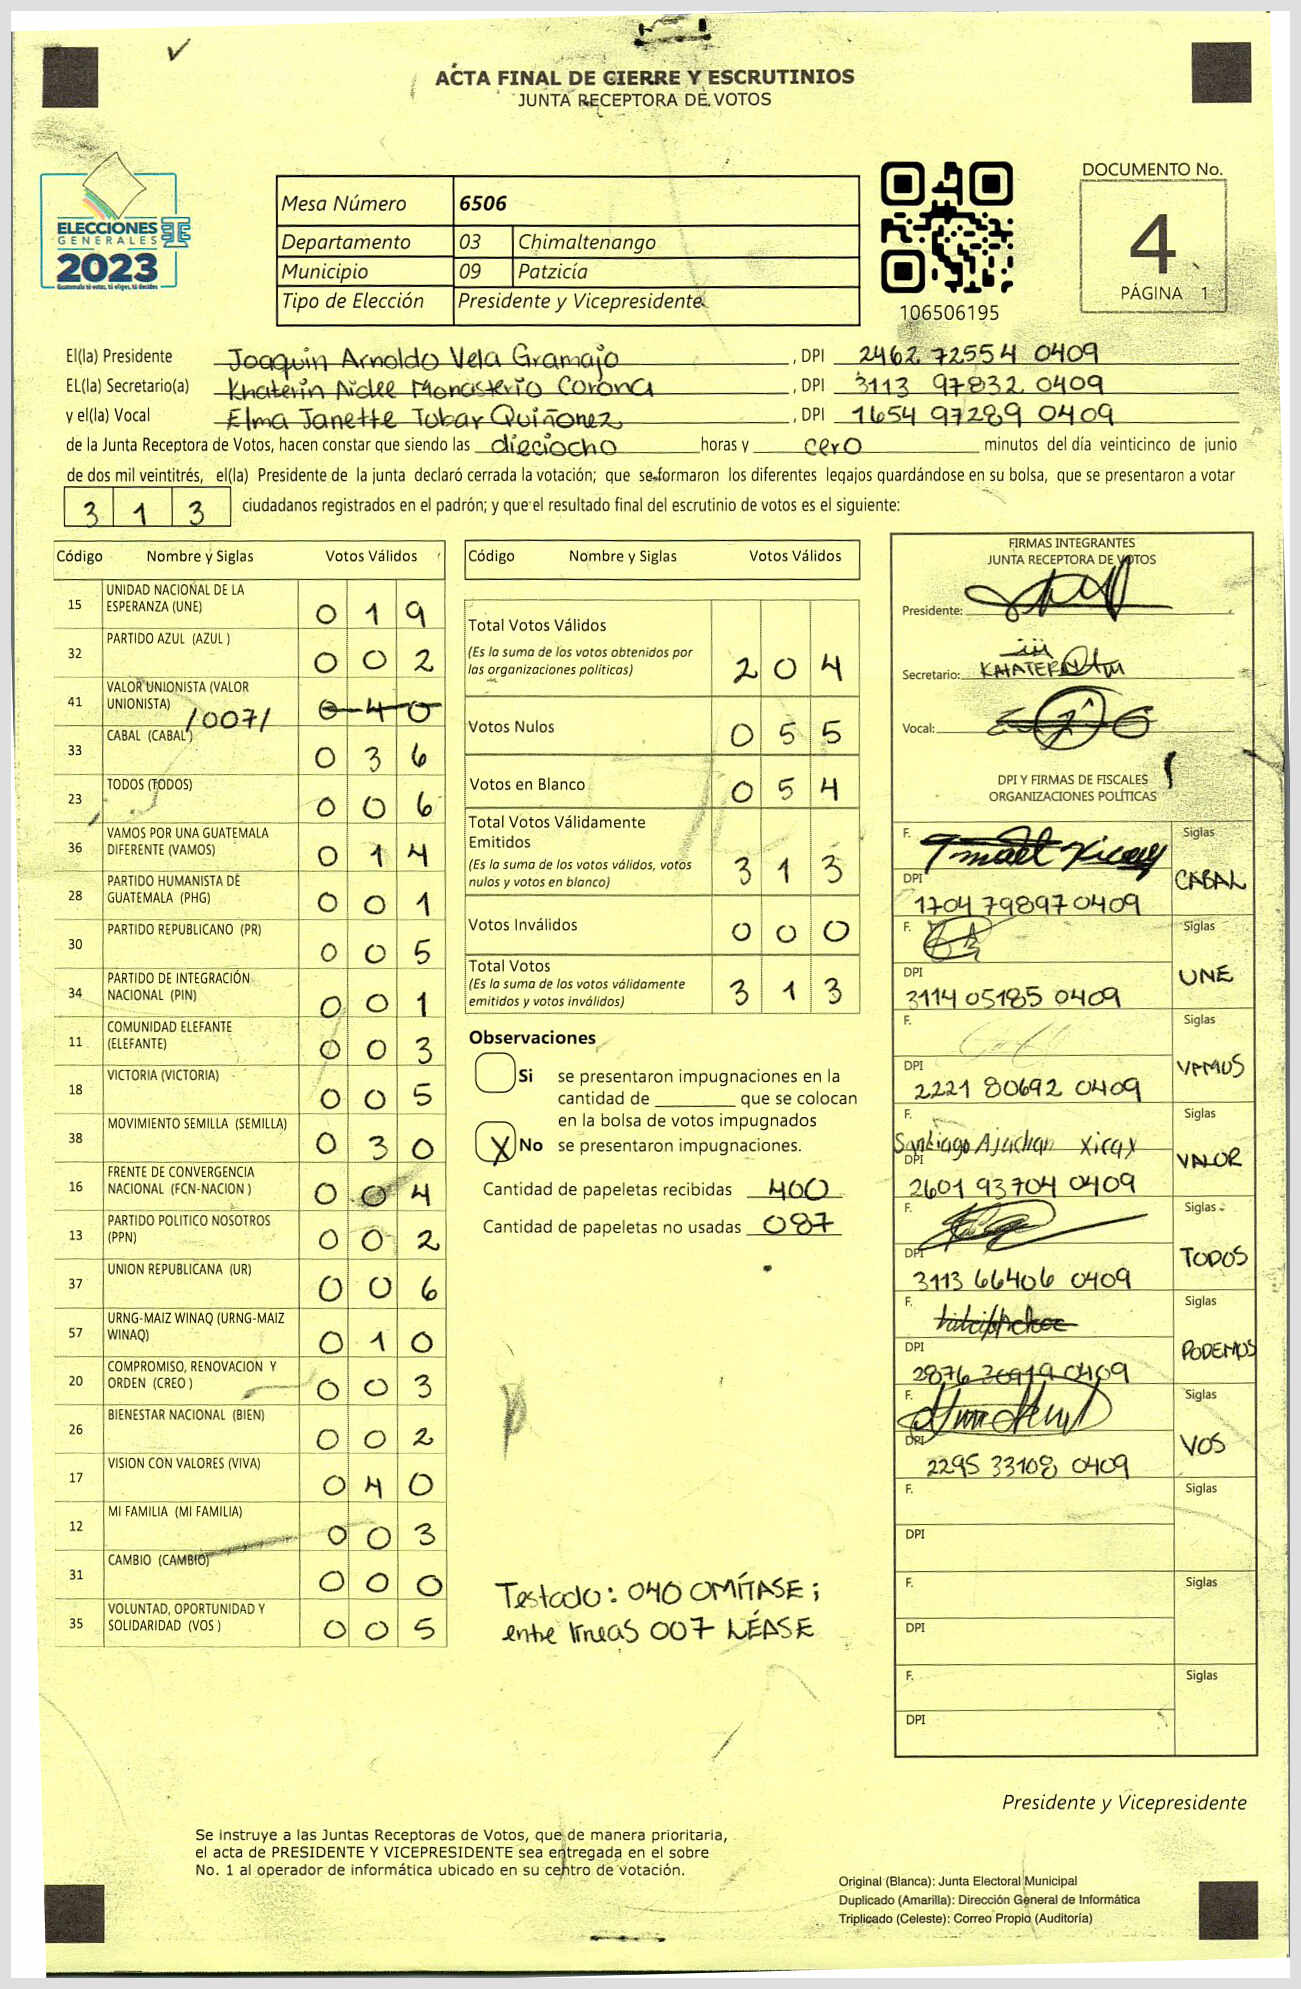 ACTA FINAL DE CIERRE Y ESCRUTINIOS
JUNTA RECEPTORA DE VOTOS
ELECCIONES
GENERALES
2023
Guatemala tú votas, tú eliges, tú decides
Mesa Número 6506
Departamento 03 Chimaltenango
Municipio 09 Patzicía
Tipo de Elección Presidente y Vicepresidente
106506195
DOCUMENTO No.
4
PÁGINA 1
El(la) Presidente Joaquin Arnoldo Vela Gramajo, DPI 2462 72554 0409
EL(la) Secretario(a) Khaterin Aidee Monasterio Corona, DPI 3113 97832 0409
y el(la) Vocal Elma Janette Tubar Quiñonez, DPI 1654 97289 0409
de la Junta Receptora de Votos, hacen constar que siendo las dieciocho horas y cero minutos del día veinticinco de junio
de dos mil veintitrés, el(la) Presidente de la junta declaró cerrada la votación; que se formaron los diferentes legajos guardándose en su bolsa, que se presentaron a votar
3 1 3 ciudadanos registrados en el padrón; y que el resultado final del escrutinio de votos es el siguiente:
Código Nombre y Siglas Votos Válidos
15 UNIDAD NACIONAL DE LA ESPERANZA (UNE) 0 1 9
32 PARTIDO AZUL (AZUL ) 0 0 2
41 VALOR UNIONISTA (VALOR UNIONISTA) /007/ 0 4 0
33 CABAL (CABAL ) 0 3 6
23 TODOS (TODOS) 0 0 6
36 VAMOS POR UNA GUATEMALA DIFERENTE (VAMOS) 0 1 4
28 PARTIDO HUMANISTA DE GUATEMALA (PHG) 0 0 1
30 PARTIDO REPUBLICANO (PR) 0 0 5
34 PARTIDO DE INTEGRACIÓN NACIONAL (PIN) 0 0 1
11 COMUNIDAD ELEFANTE (ELEFANTE) 0 0 3
18 VICTORIA (VICTORIA) 0 0 5
38 MOVIMIENTO SEMILLA (SEMILLA) 0 3 0
16 FRENTE DE CONVERGENCIA NACIONAL (FCN-NACION ) 0 0 4
13 PARTIDO POLITICO NOSOTROS (PPN) 0 0 2
37 UNION REPUBLICANA (UR) 0 0 6
57 URNG-MAIZ WINAQ (URNG-MAIZ WINAQ) 0 1 0
20 COMPROMISO, RENOVACION Y ORDEN (CREO ) 0 0 3
26 BIENESTAR NACIONAL (BIEN) 0 0 2
17 VISION CON VALORES (VIVA) 0 4 0
12 MI FAMILIA (MI FAMILIA) 0 0 3
31 CAMBIO (CAMBIO) 0 0 0
35 VOLUNTAD, OPORTUNIDAD Y SOLIDARIDAD (VOS ) 0 0 5
Código Nombre y Siglas Votos Válidos
Total Votos Válidos
(Es la suma de los votos obtenidos por
las organizaciones políticas) 2 0 4
Votos Nulos 0 5 5
Votos en Blanco 0 5 4
Total Votos Válidamente
Emitidos
(Es la suma de los votos válidos, votos
nulos y votos en blanco) 3 1 3
Votos Inválidos 0 0 0
Total Votos
(Es la suma de los votos válidamente
emitidos y votos inválidos) 3 1 3
Observaciones
Si se presentaron impugnaciones en la
cantidad de ________ que se colocan
en la bolsa de votos impugnados
X No se presentaron impugnaciones.
Cantidad de papeletas recibidas 400
Cantidad de papeletas no usadas 087
Testado: 040 OMÍTASE;
entre líneas 007 LÉASE
FIRMAS INTEGRANTES
JUNTA RECEPTORA DE VOTOS
Presidente:
Secretario:
Vocal:
DPI Y FIRMAS DE FISCALES
ORGANIZACIONES POLÍTICAS
F. Siglas
DPI 1704 79897 0409 CABAL
F. Siglas
DPI 3114 05185 0409 UNE
F. Siglas
DPI 2221 80692 0409 VAMOS
F. Santiago Ajuchan Xicay Siglas
DPI 2601 93704 0409 VALOR
F. Siglas
DPI 3113 66406 0409 TODOS
F. Siglas
DPI 2876 30919 0409 PODEMOS
F. Siglas
DPI 2295 33108 0409 VOS
F. Siglas
DPI
F. Siglas
DPI
F. Siglas
DPI
Presidente y Vicepresidente
Se instruye a las Juntas Receptoras de Votos, que de manera prioritaria,
el acta de PRESIDENTE Y VICEPRESIDENTE sea entregada en el sobre
No. 1 al operador de informática ubicado en su centro de votación.
Original (Blanca): Junta Electoral Municipal
Duplicado (Amarilla): Dirección General de Informática
Triplicado (Celeste): Correo Propio (Auditoría)